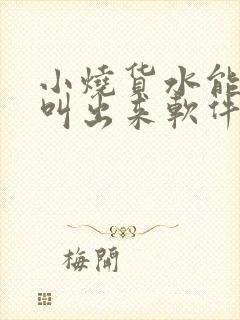 小燒货水能
叫出来軟件
梅開